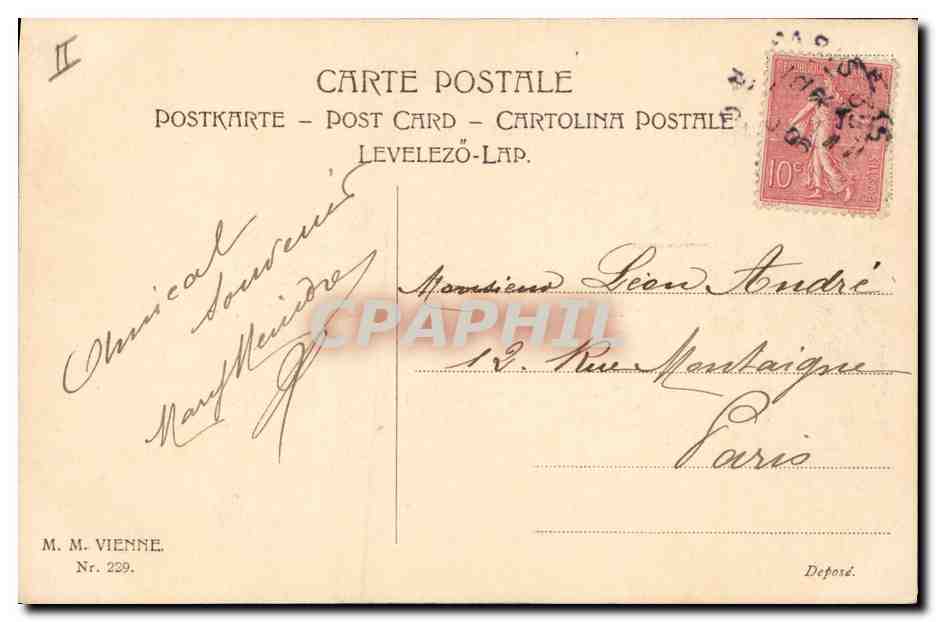 II
CARTE POSTALE
POSTKARTE – POST CARD – CARTOLINA POSTALE
LEVELEZŐ-LAP.
10c
POSTES
Amical
Souvenir
Mary
Monsieur Léon André
12. Rue Montaigne
Paris
CPAPHIL
M. M. VIENNE.
Nr. 229.
Deposé.